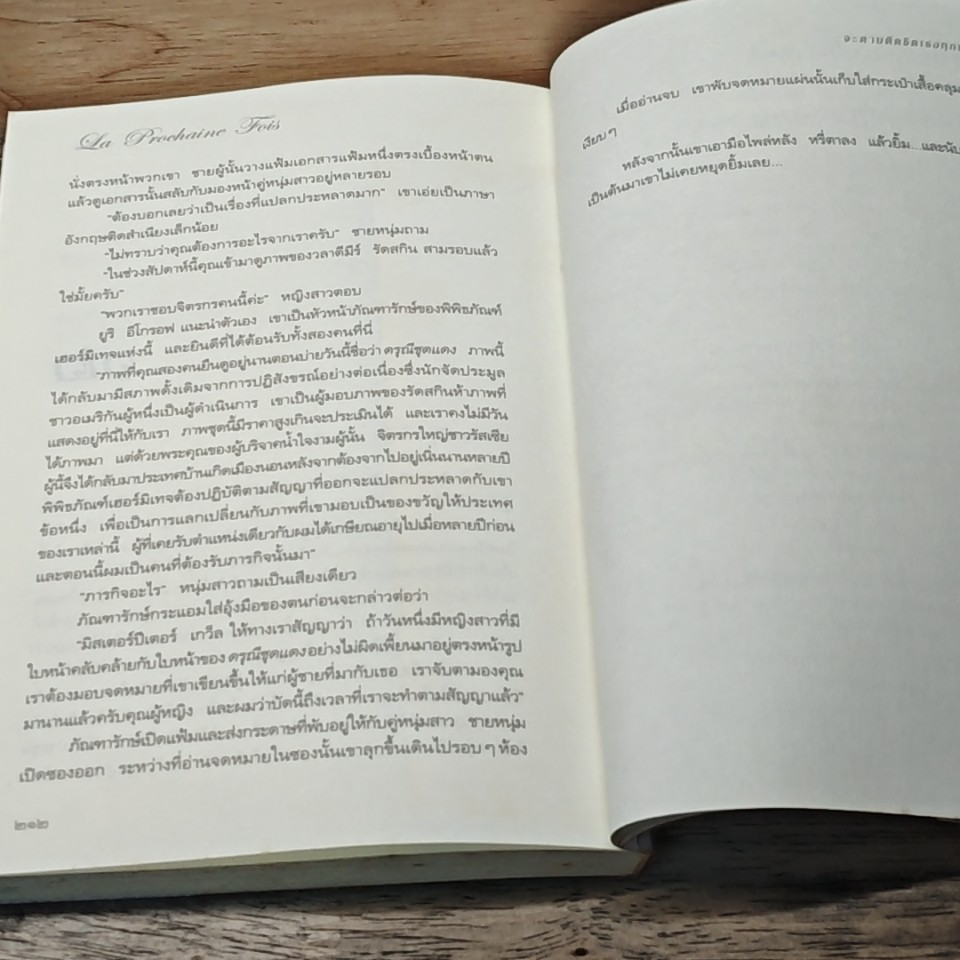 La Prochaine Fois
นั่งตรงหน้าพวกเขา ชายผู้นั้นวางแฟ้มเอกสารแฟ้มหนึ่งตรงเบื้องหน้าตน
แล้วดูเอกสารนั้นสลับกับมองหน้าคู่หนุ่มสาวอยู่หลายรอบ
"ต้องบอกเลยว่าเป็นเรื่องที่แปลกประหลาดมาก" เขาเอ่ยเป็นภาษา
อังกฤษติดสำเนียงเล็กน้อย
"ไม่ทราบว่าคุณต้องการอะไรจากเราครับ" ชายหนุ่มถาม
"ในช่วงสัปดาห์นี้คุณเข้ามาดูภาพของวลาดีมีร์ รัดสกิน สามรอบแล้ว
ใช่มั้ยครับ"
"พวกเราชอบจิตรกรคนนี้ค่ะ" หญิงสาวตอบ
ยูริ อีโกรอฟ แนะนำตัวเอง เขาเป็นหัวหน้าภัณฑารักษ์ของพิพิธภัณฑ์
เฮอร์มิเทจแห่งนี้ และยินดีที่ได้ต้อนรับทั้งสองคนที่นี่
"ภาพที่คุณสองคนยืนดูอยู่นานตอนบ่ายวันนี้ชื่อว่า ดรุณีชุดแดง ภาพนี้
ได้กลับมามีสภาพดั้งเดิมจากการปฏิสังขรณ์อย่างต่อเนื่องซึ่งนักจัดประมูล
ชาวอเมริกันผู้หนึ่งเป็นผู้ดำเนินการ เขาเป็นผู้มอบภาพของรัดสกินห้าภาพที่
แสดงอยู่ที่นี่ให้กับเรา ภาพชุดนี้มีราคาสูงเกินจะประเมินได้ และเราคงไม่มีวัน
ได้ภาพมา แต่ด้วยพระคุณของผู้บริจาคน้ำใจงามผู้นั้น จิตรกรใหญ่ชาวรัสเซีย
ผู้นี้จึงได้กลับมาประเทศบ้านเกิดเมืองนอนหลังจากต้องจากไปอยู่เนิ่นนานหลายปี
พิพิธภัณฑ์เฮอร์มิเทจต้องปฏิบัติตามสัญญาที่ออกจะแปลกประหลาดกับเขา
ข้อหนึ่ง เพื่อเป็นการแลกเปลี่ยนกับภาพที่เขามอบเป็นของขวัญให้ประเทศ
ของเราเหล่านี้ ผู้ที่เคยรับตำแหน่งเดียวกับผมได้เกษียณอายุไปเมื่อหลายปีก่อน
และตอนนี้ผมเป็นคนที่ต้องรับภารกิจนั้นมา"
"ภารกิจอะไร" หนุ่มสาวถามเป็นเสียงเดียว
ภัณฑารักษ์กระแอมใส่อุ้งมือของตนก่อนจะกล่าวต่อว่า
"มิสเตอร์ปีเตอร์ เกวีล ให้ทางเราสัญญาว่า ถ้าวันหนึ่งมีหญิงสาวที่มี
ใบหน้าคลับคล้ายกับใบหน้าของ ดรุณีชุดแดง อย่างไม่ผิดเพี้ยนมาอยู่ตรงหน้ารูป
เราต้องมอบจดหมายที่เขาเขียนขึ้นให้แก่ผู้ชายที่มากับเธอ เราจับตามองคุณ
มานานแล้วครับคุณผู้หญิง และผมว่าบัดนี้ถึงเวลาที่เราจะทำตามสัญญาแล้ว"
ภัณฑารักษ์เปิดแฟ้มและส่งกระดาษที่พับอยู่ให้กับคู่หนุ่มสาว ชายหนุ่ม
เปิดซองออก ระหว่างที่อ่านจดหมายในซองนั้นเขาลุกขึ้นเดินไปรอบๆ ห้อง
๒๑๒
จะตามติดชิดเธอทุก
เมื่ออ่านจบ เขาพับจดหมายแผ่นนั้นเก็บใส่กระเป๋าเสื้อคลุม
เงียบๆ
หลังจากนั้นเขาเอามือไพล่หลัง หรี่ตาลง แล้วยิ้ม...และนับ
เป็นต้นมาเขาไม่เคยหยุดยิ้มเลย...